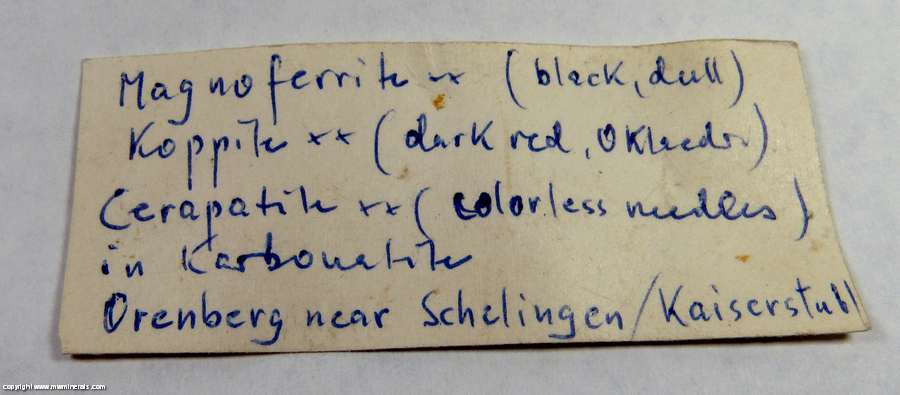 Magnoferrite xx (black, dull)
Koppite xx (dark red, Oktaeder)
Cerapatite xx (colorless needles)
in Karbonatite
Orenberg near Schelingen/Kaiserstuhl
copyright www.mwminerals.com